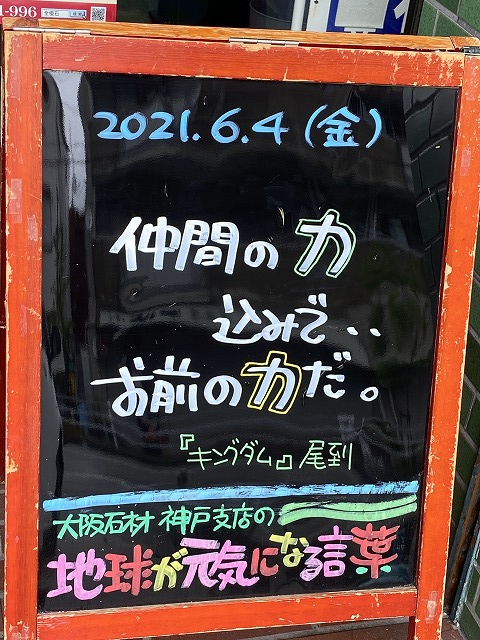 1-996
2021.6.4(金)
仲間の力
込みで・・
お前の力だ。
『キングダム』尾到
大阪石材 神戸支店の
地球が元気になる言葉